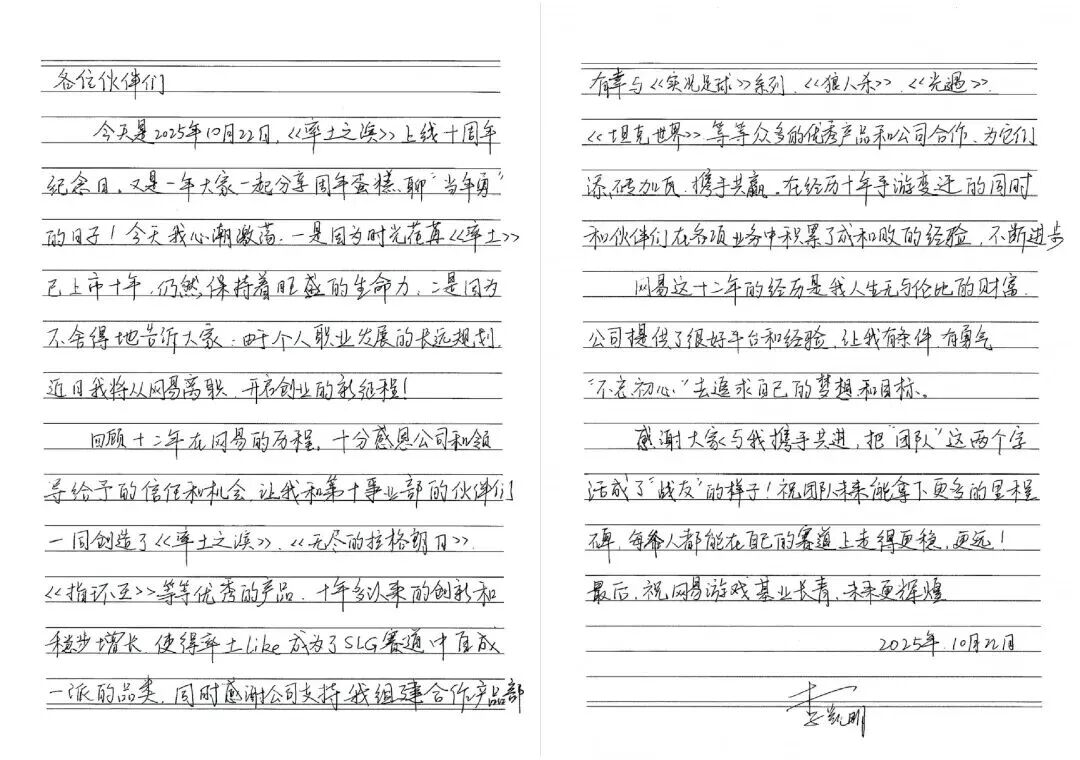 各位伙伴们
今天是2025年10月22日,《率土之滨》上线十周年
纪念日,又是一年大家一起分享周年蛋糕、聊"当年勇"
的日子!今天我心潮激荡,一是因为时光荏苒《率土》
已上市十年,仍然保持着旺盛的生命力,二是因为
不舍得地告诉大家:由于个人职业发展的长远规划
近日我将从网易离职,开启创业的新征程!
回顾十二年在网易的历程,十分感恩公司和领
导给予的信任和机会,让我和第十事业部的伙伴们
一同创造了《率土之滨》、《无尽的拉格朗日》、
《指环王》等等优秀的产品,十年多以来的创新和
稳步增长,使得率土Like成为了SLG赛道中自成
一派的品类,同时感谢公司支持我组建合作产品部
有幸与《实况足球》系列、《狼人杀》、《光遇》、
《坦克世界》等等众多的优秀产品和公司合作,为它们
添砖加瓦,携手共赢。在经历十年手游变迁的同时
和伙伴们在各项业务中积累了成和败的经验,不断进步
网易这十二年的经历是我人生无与伦比的财富,
公司提供了很好平台和经验,让我有条件,有勇气
"不忘初心"去追求自己的梦想和目标。
感谢大家与我携手共进,把"团队"这两个字
活成了"战友"的样子!祝团队未来能拿下更多的里程
碑,每个人都能在自己的赛道上走得更稳,更远!
最后,祝网易游戏基业长青,未来更辉煌
2025年10月22日
李凯明